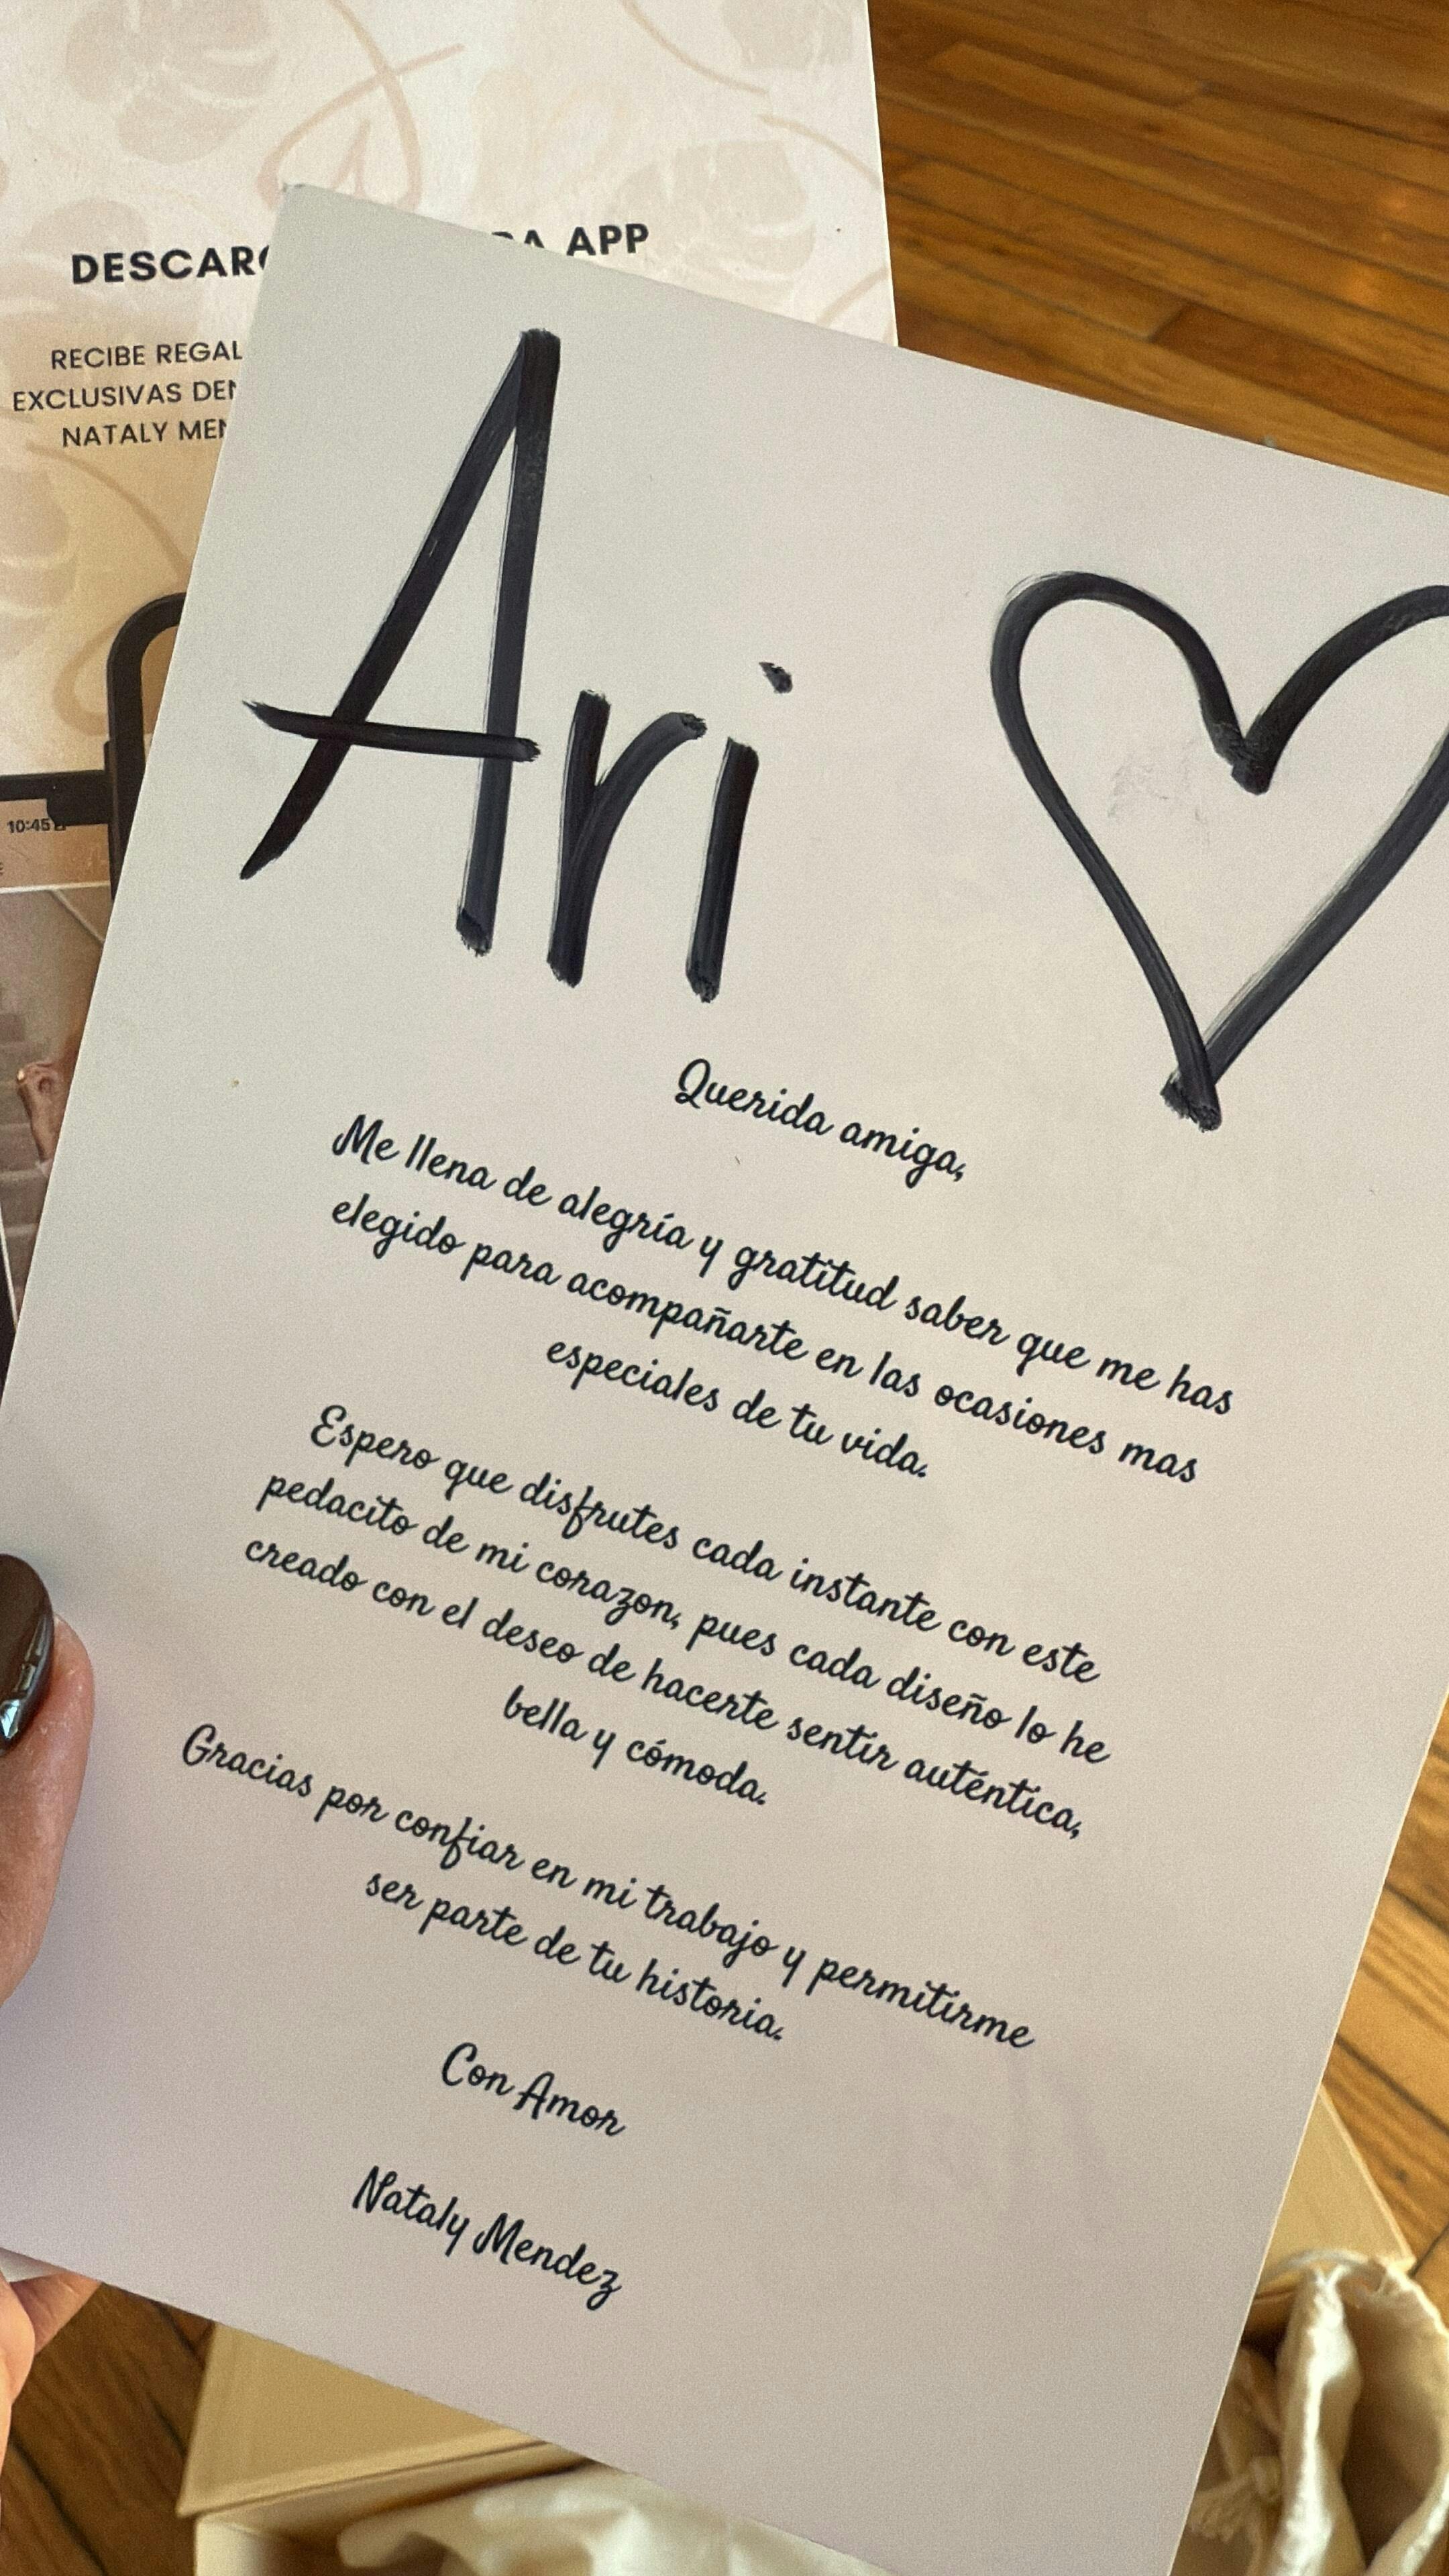 APP
RECIBE
EXCLUSIVAS
NATALY
10:45
Ari
Querida amiga,
Me llena de alegría y gratitud saber que me has
elegido para acompañarte en las ocasiones mas
especiales de tu vida.
Espero que disfrutes cada instante con este
pedacito de mi corazon, pues cada diseño lo he
creado con el deseo de hacerte sentir auténtica,
bella y cómoda.
Gracias por confiar en mi trabajo y permitirme
ser parte de tu historia.
Con Amor
Nataly Mendez